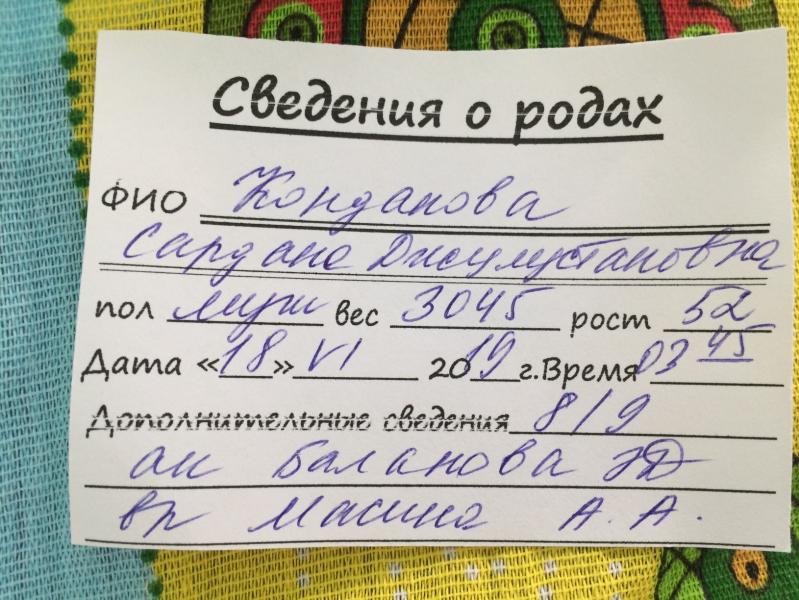 Сведения о родах
ФИО Кондакова
Сардана Джулустановна
пол муж вес 3045 рост 52
Дата «18» VI 2019 г. Время 03 45
Дополнительные сведения 8/9
ак Баланова
вр Масина А. А.